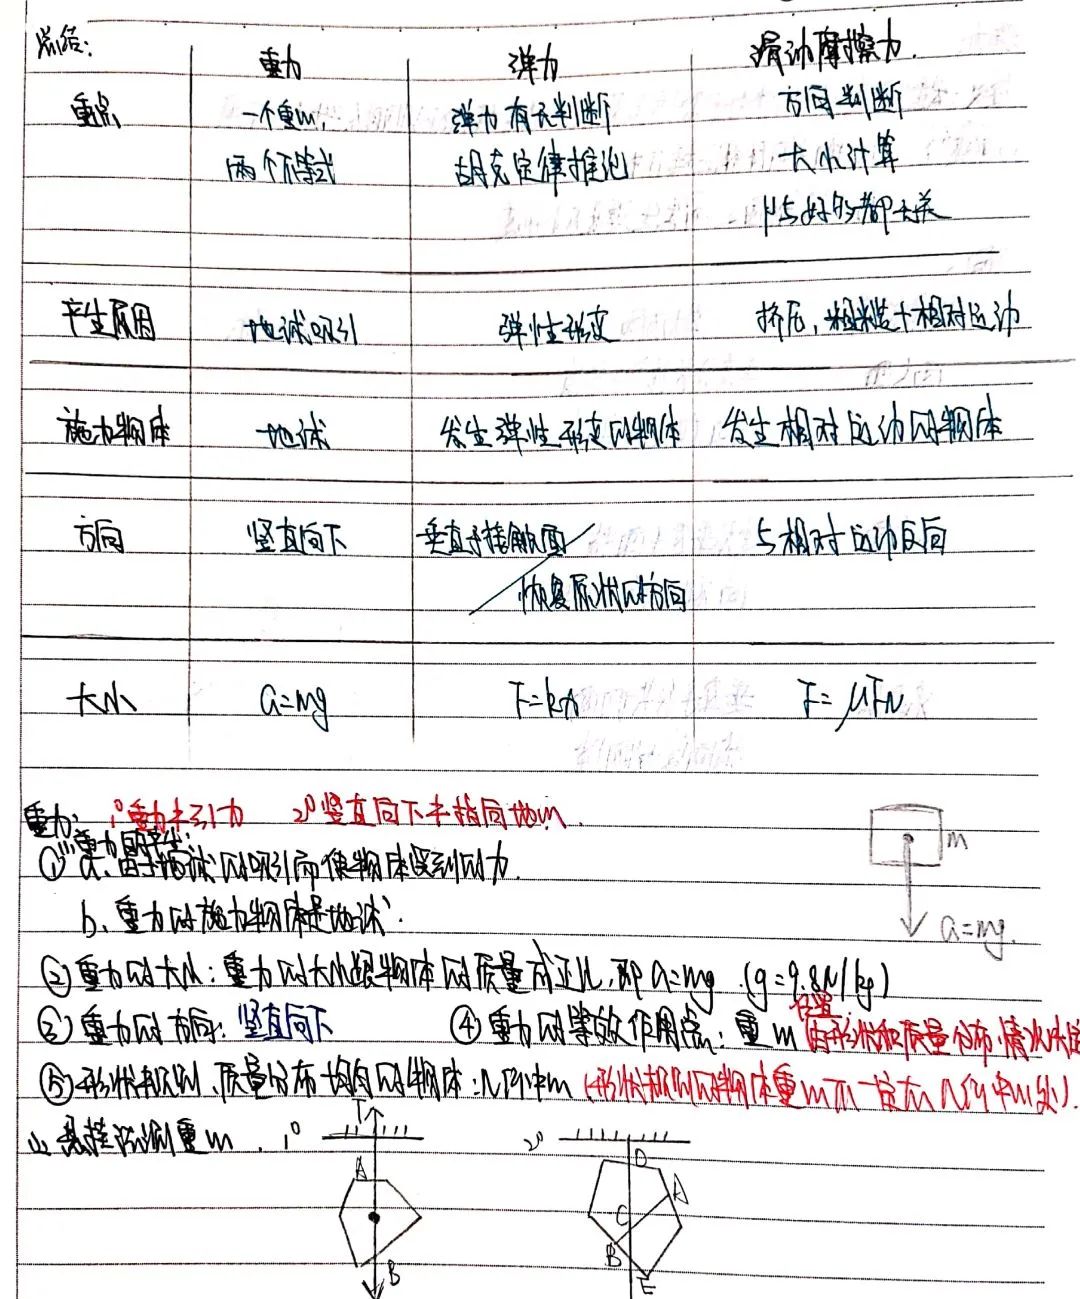 总结:
重力 弹力 滑动摩擦力.
重点 一个重心, 弹力有无判断 方向判断
两个不等式 胡克定律推论 大小计算
μ与好多都无关
产生原因 地球吸引 弹性形变 挤压,粗糙+相对运动
施力物体 地球 发生弹性形变的物体 发生相对运动的物体
方向 竖直向下 垂直于接触面 与相对运动反向
恢复原状的方向
大小 G=mg F=kx F=μFN
重力: 1°重力≠引力 2°竖直向下≠指向地心.
重力的产生:
① a.由于地球的吸引而使物体受到的力.
m
b.重力的施力物体是地球.
G=mg.
②重力的大小:重力的大小跟物体的质量成正比,即G=mg.(g=9.8N/kg)
位置
③重力的方向:竖直向下 ④重力的等效作用点:重心 由形状和质量分布情况决定
⑤形状规则、质量分布均匀的物体:几何中心(形状规则的物体重心不一定在几何中心处).
悬挂法测重心. 1° T 2°
A D A
C
B B E